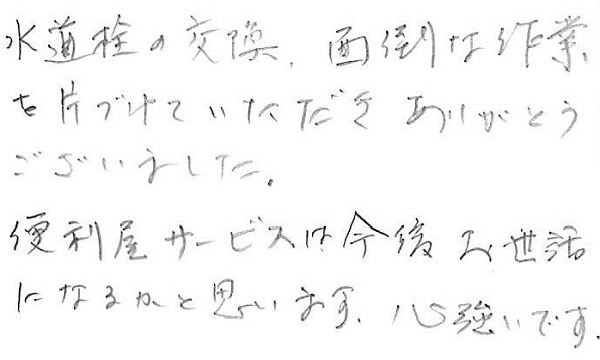 水道栓の交換、面倒な作業
を片づけていただき ありがとう
ございました。
便利屋サービスは今後お世話
になるかと思います。心強いです。